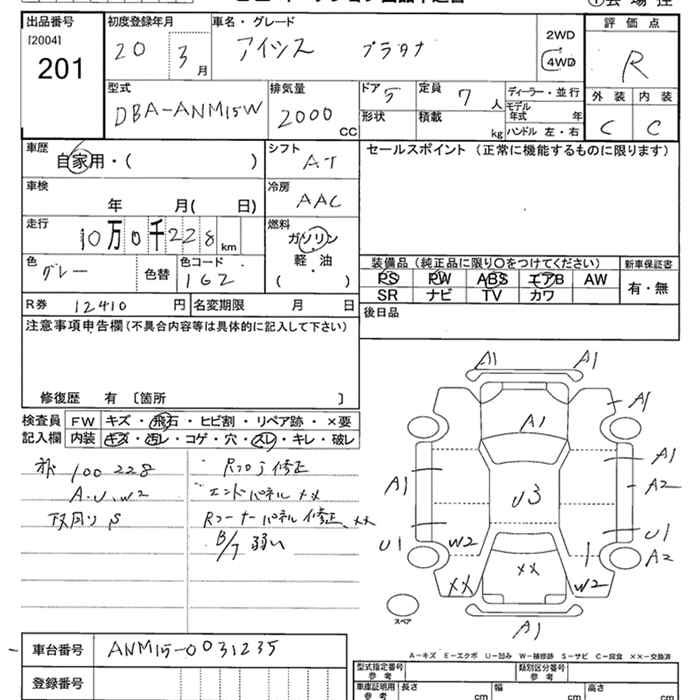 出品番号
[2004]
201
初度登録年月
20 3月
車名・グレード
アイシス プラタナ
2WD
4WD
評価点
R
外装 内装
C C
型式
DBA-ANM15W
排気量
2000 CC
ドア 5
形状
定員 7 人
積載 kg
ディーラー・並行
モデル年式 年
ハンドル 左・右
車歴
自家用・( )
シフト
AT
セールスポイント (正常に機能するものに限ります)
車検
年 月( 日)
冷房
AAC
走行
10万0千228 km
燃料
ガソリン
軽・油
( ・ )
色
グレー
色替
色コード
1G2
装備品 (純正品に限り○をつけてください)
新車保証書
PS PW ABS エアB AW
SR ナビ TV カワ
有・無
R券 12410 円
名変期限 月 日
後日品
注意事項申告欄 (不具合内容等は具体的に記入して下さい)
修復歴 有 〔箇所 〕
検査員
記入欄
FW キズ・飛石・ヒビ割・リペア跡・×要
内装 キズ・汚レ・コゲ・穴・スレ・キレ・破レ
100228
A.U.W2
S
修正
エンドパネル ××
Rコーナーパネル 修正、××
B/T 弱い
A1 A1
A1
A1
A1
A1
A1
A2
U3
U1
W2
U1
A2
××
××
W2
A1
スペア
A-キズ E-エクボ U-凹み W-補修跡 S-サビ C-腐食 ××-交換済
車台番号
ANM15-0031235
登録番号
型式指定番号
参考
類別区分番号
参考
車庫証明用
参考
長さ cm
幅 cm
高さ cm